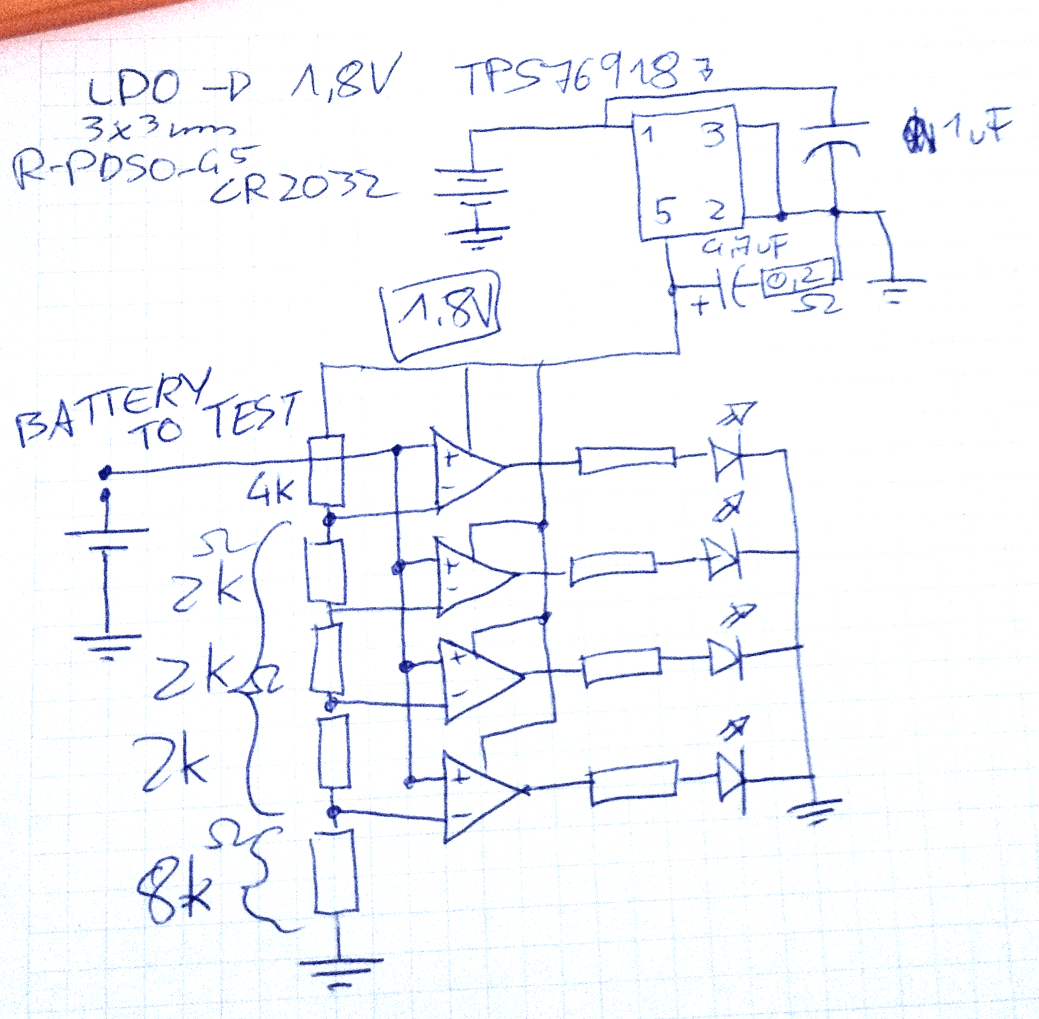 LDO → 1,8V TPS76918?
3x3mm
R-PDSO-G5
CR2032
1 3
5 2
1uF
4,7uF
+ 0,2
Ω
1.8V
BATTERY
TO TEST
+
-
4k
Ω
2k
+
-
2kΩ
+
-
2k
+
-
Ω
8k